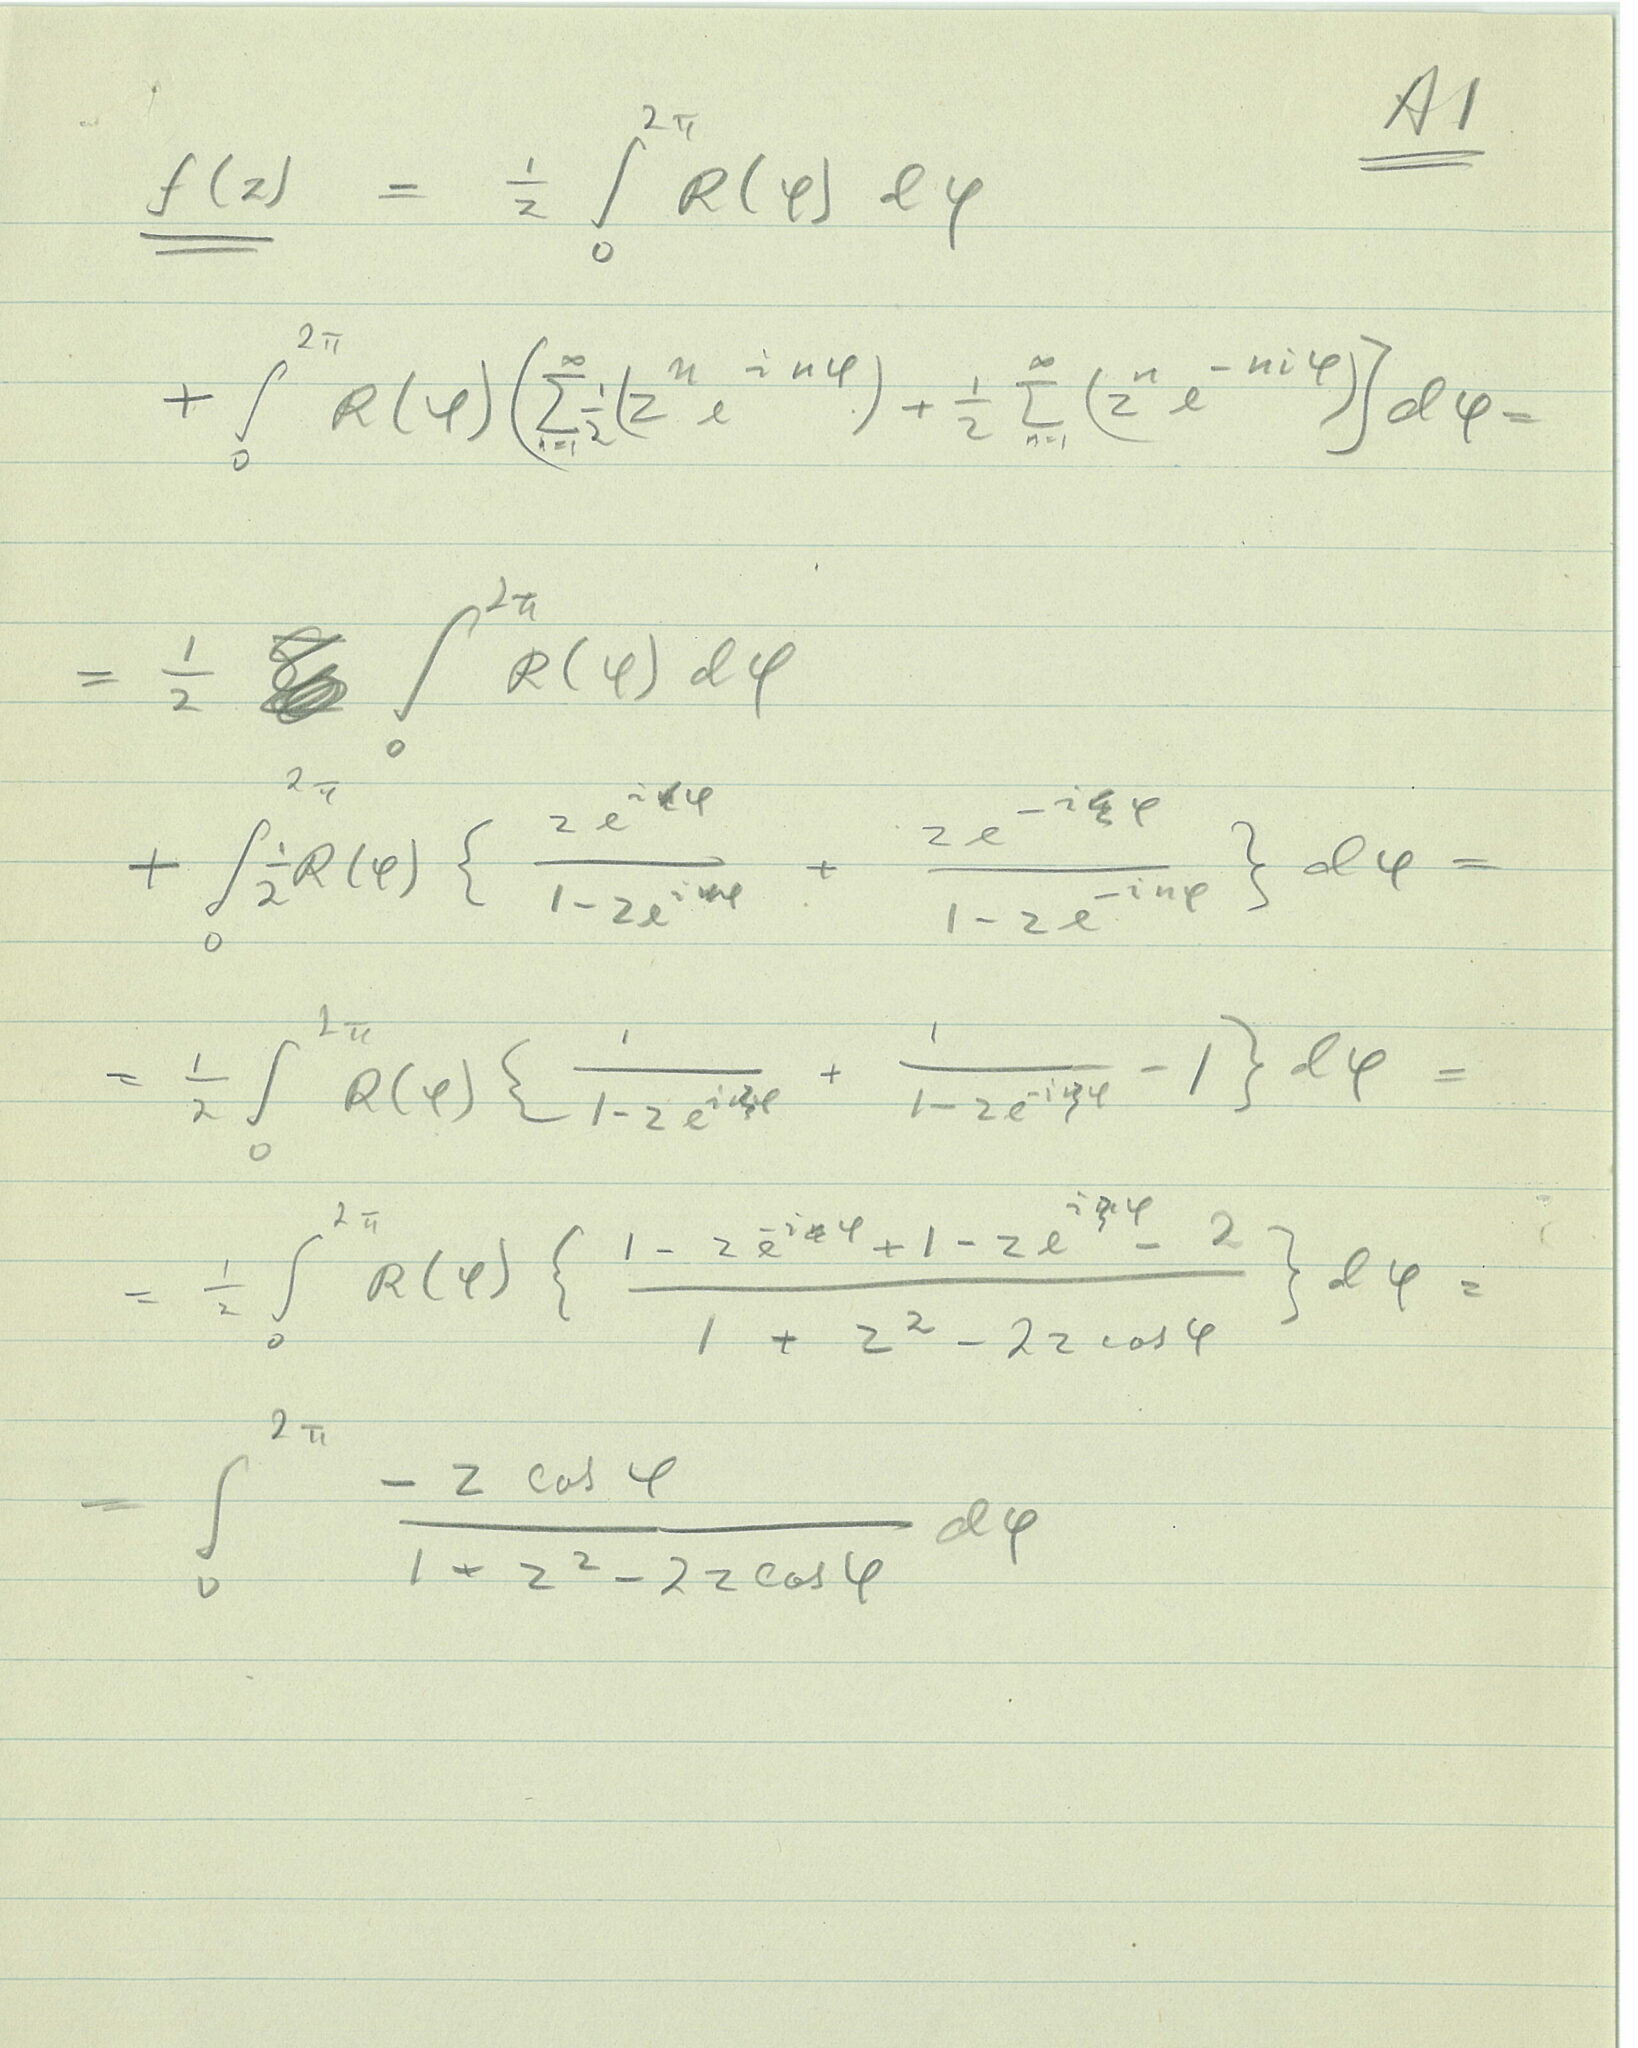 A1
f(z) = 1/2 ∫_0^{2π} R(φ) dφ
+ ∫_0^{2π} R(φ) ( ∑_{n=1}^∞ 1/2 (z^n e^{inφ}) + 1/2 ∑_{n=1}^∞ (z^n e^{-niφ}) ] dφ =
= 1/2 ∫_0^{2π} R(φ) dφ
+ ∫_0^{2π} 1/2 R(φ) { z e^{iφ} / 1 - z e^{iφ} + z e^{-iφ} / 1 - z e^{-inφ} } dφ =
= 1/2 ∫_0^{2π} R(φ) { 1 / 1 - z e^{iφ} + 1 / 1 - z e^{-iφ} - 1 } dφ =
= 1/2 ∫_0^{2π} R(φ) { 1 - z e^{-iφ} + 1 - z e^{iφ} - 2 / 1 + z^2 - 2z cos φ } dφ =
= ∫_0^{2π} - z cos φ / 1 + z^2 - 2z cos φ dφ